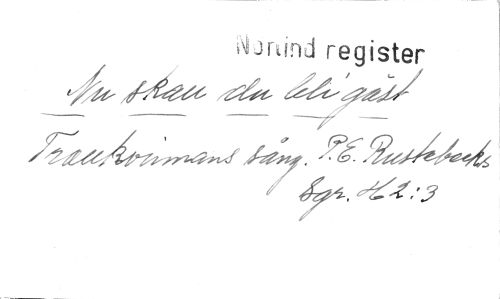 Norlind register
Nu skall du bli gäst
Trankvinnans sång. P.E. Rustebecks
Sgr. H2:3